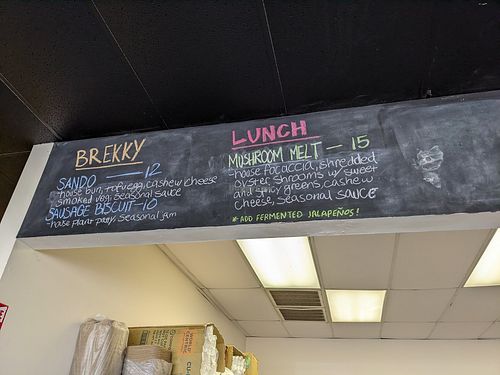 BREKKY
SANDO — 12
house bun, tofu egg, cashew cheese
smoked veg, seasonal sauce
SAUSAGE BISCUIT - 10
- house plant patty, seasonal jam
LUNCH
MUSHROOM MELT — 15
- house focaccia, shredded
oyster shrooms w/ sweet
and spicy greens, cashew
cheese, seasonal SAUCE
* ADD FERMENTED JALAPEÑOS!
WORLD
CENTRIC